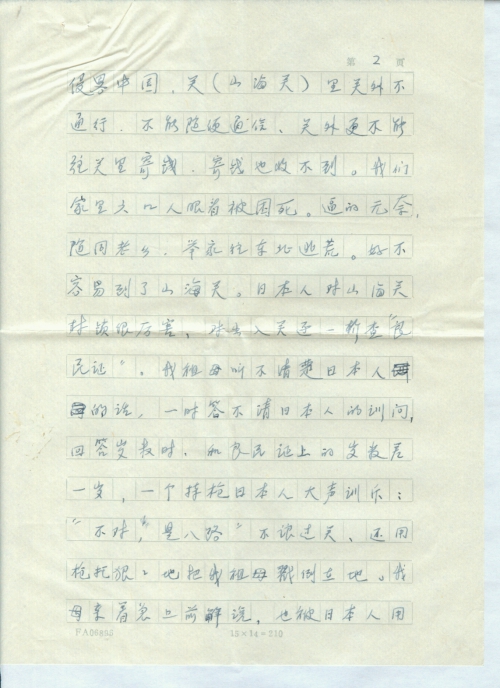 第 2 页
侵畧中国，关（山海关）里关外不
通行，不能随便通信，关外更不能
往关里寄钱，寄钱也收不到。我们
家里六口人眼看被困死。逼的无奈，
随同老乡，举家往东北逃荒。好不
容易到了山海关。日本人对山海关
封锁很厉害，对出入关还一个个查“良
民证”。我祖母听不清楚日本人
的话，一时答不清日本人的训问，
回答岁数时，和良民证上的岁数差
一岁，一个持枪日本人大声训斥：
“不对，是八路”不让过关，还用
枪托狠々地把我祖母戳倒在地。我
母亲着急上前解说，也被日本人用
FA06853
15×14=210